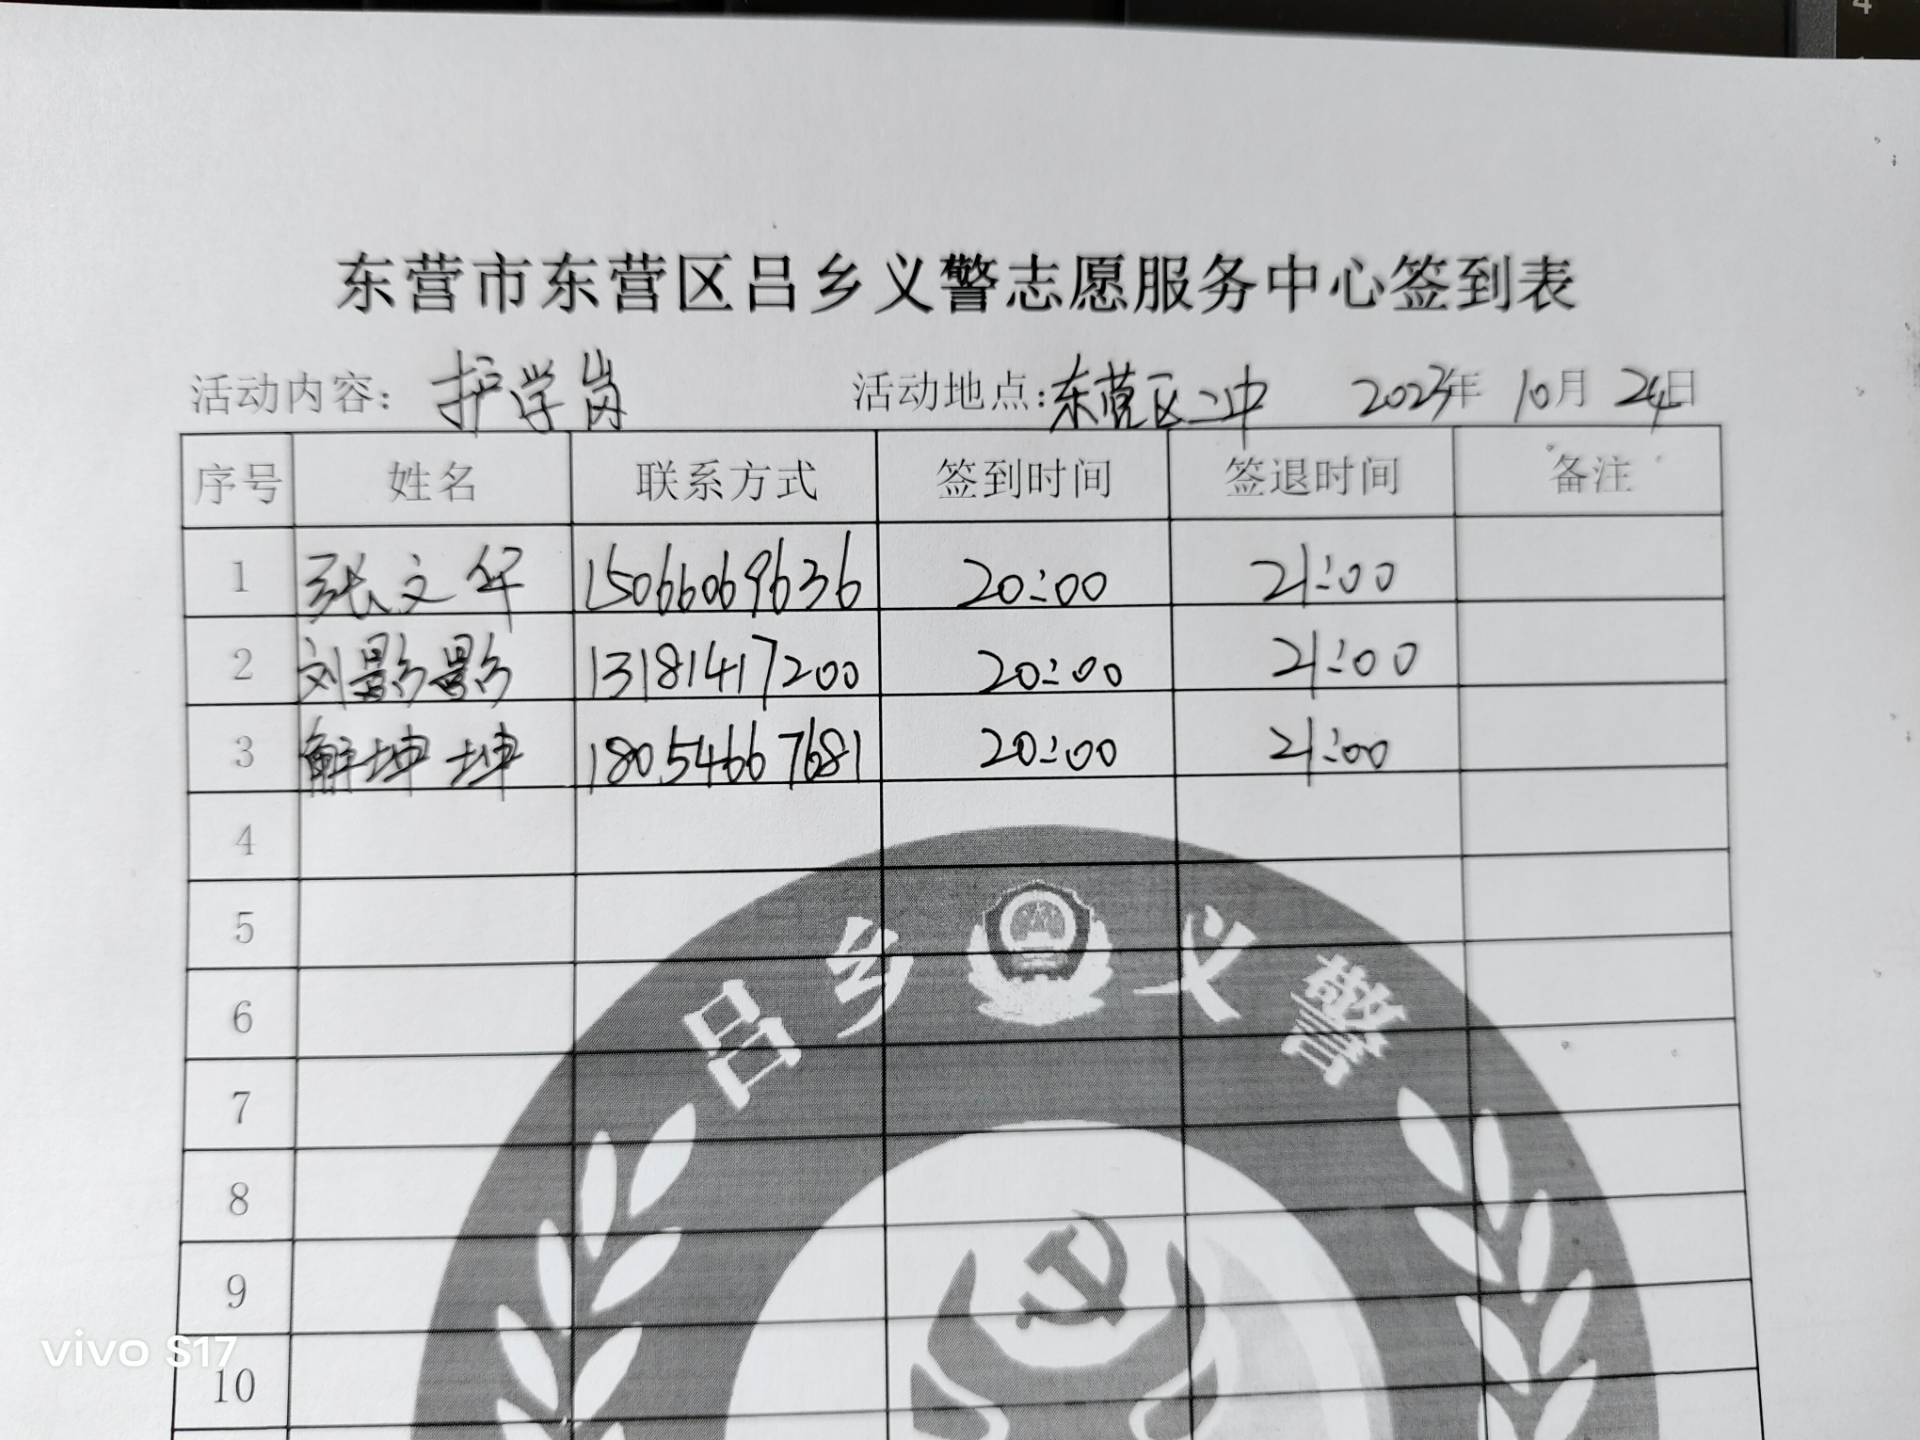 4
东营市东营区吕乡义警志愿服务中心签到表
活动内容: 护学岗 活动地点:东营区二中 2023年 10月 24日
序号 姓名 联系方式 签到时间 签退时间 备注
1 张文华 15066069636 20:00 21:00
2 刘影影 13181417200 20:00 21:00
3 解坤坤 18054667681 20:00 21:00
4
5
6
7
8
9
10
吕乡义警
vivo S17